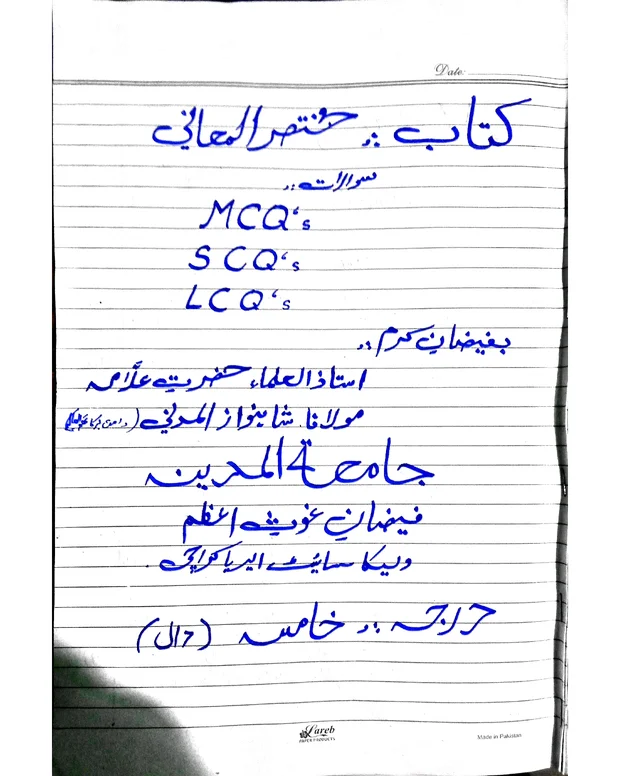 Date:
کتاب :. مختصر المعانی
سوالات :.
MCQ's
SCQ's
LCQ's
بفیضانِ کرم :.
استاذ العلماء حضرت علّامہ
مولانا شاہنواز المدنی (دامت برکاتہم العالیہ)
جامعۃ المدینہ
فیضانِ غوثِ اعظم
ولیکا سائٹ ایریا کراچی
درجہ :. خامسہ (دال)
Lareb
PAPER PRODUCTS
Made in Pakistan